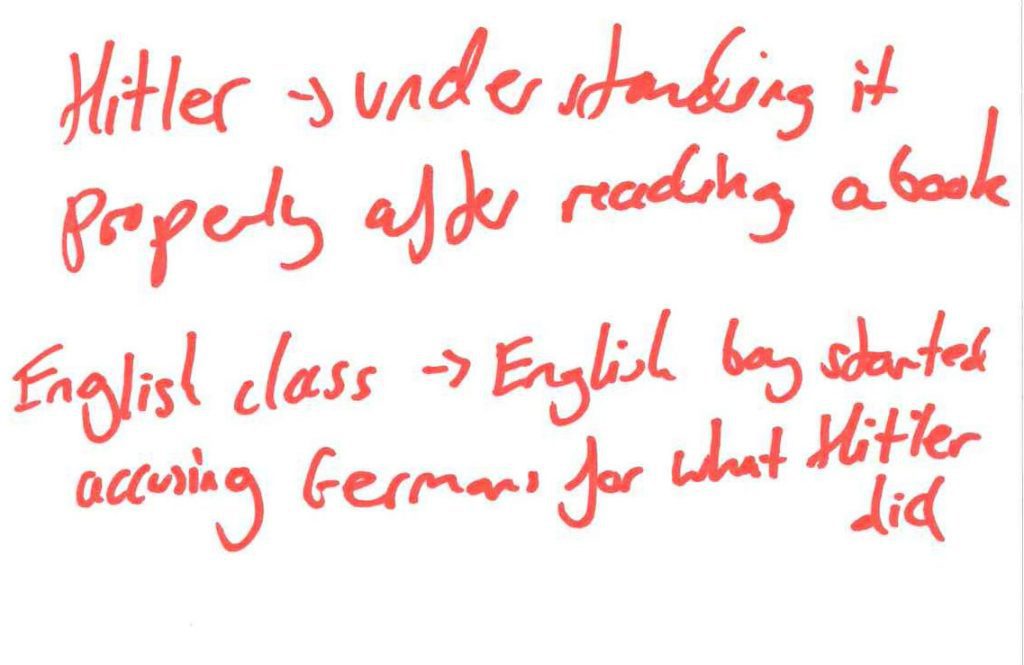 Hitler → understanding it
properly after reading a book
English class → English boy started
accusing Germans for what Hitler
did